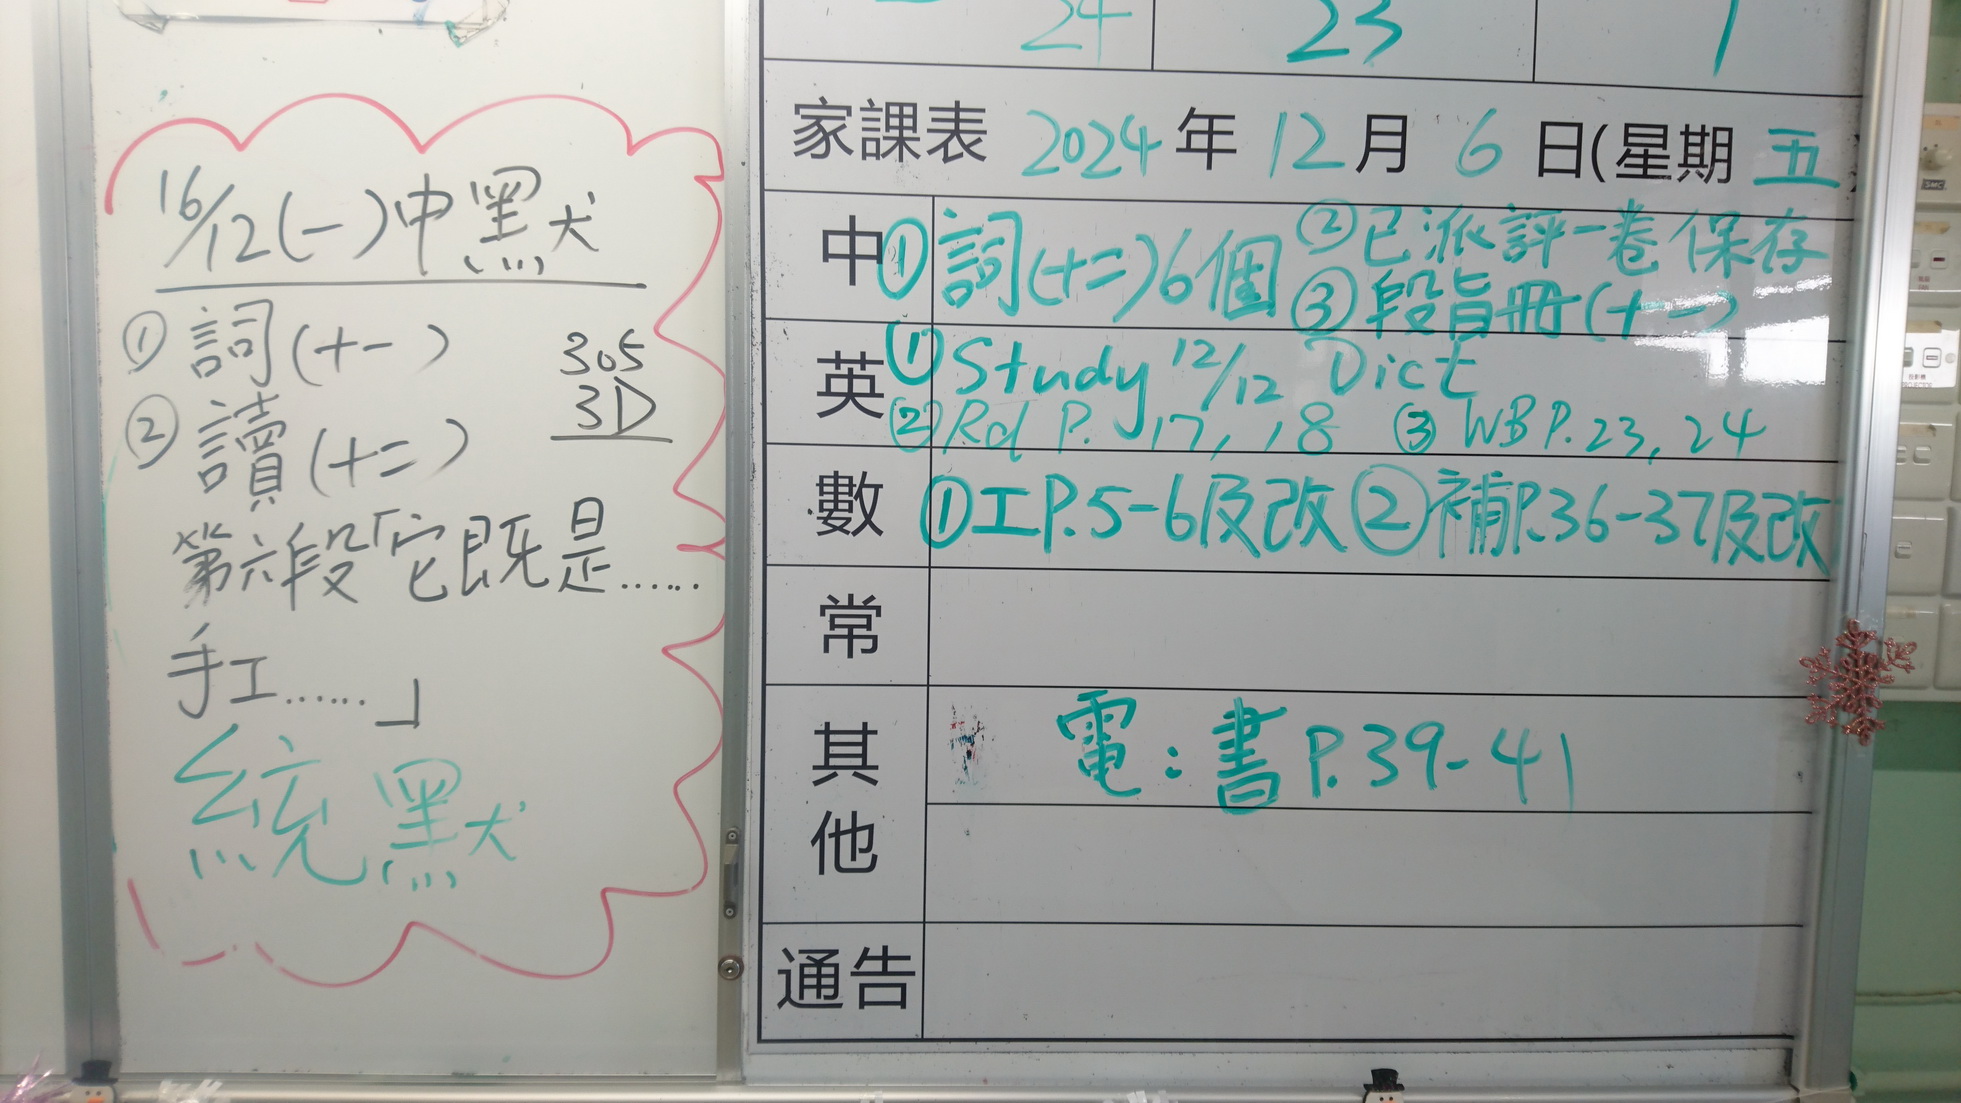 16/12(一)中默
① 詞(十一)
305
3D
② 讀(十二)
第六段「它既是......
手工......」
統默
24
23
1
家課表 2024年12月6日(星期五)
中 ①詞(十二)6個 ②已派評一卷保存
③段旨冊(十一)
英 ① Study 12/12 Dict
② Rd P. 17, 18 ③ WB P.23, 24
數 ①工P.5-6及改 ②補P.36-37及改
常
其他
電：書P.39-41
通告